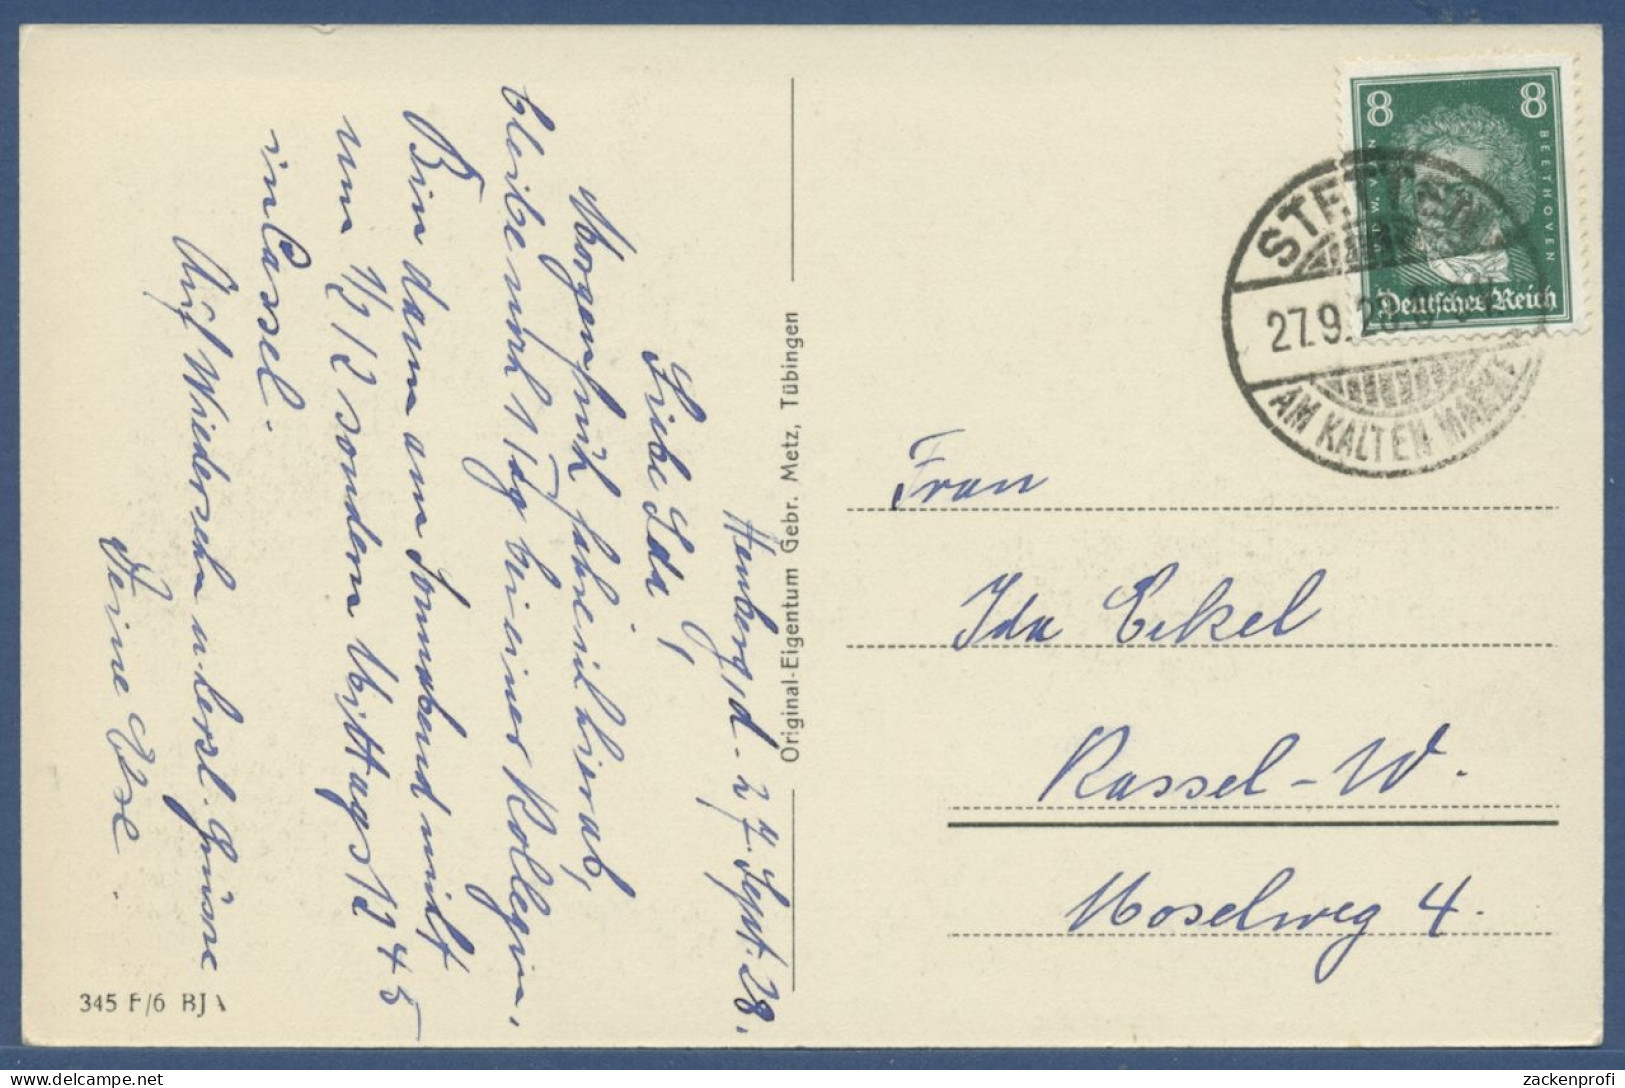 Heuberg, d. 27. Sept. 28.
Liebe Ida,
Morgen früh fahre ich hier ab,
bleibe noch 1 Tag bei einer Kollegin.
Bin dann am Sonnabend nicht
um 1/2 12 sondern Mittags 12 45
in Cassel.
Auf Wiedersehn u. herzl. Grüsse
Deine Else.
345 F/6 BJA
Original-Eigentum Gebr. Metz, Tübingen
8 8
BEETHOVEN
Deutsches Reich
STETTEN
27.9.28.
AM KALTEN MARKT
Frau
Ida Eckel
Kassel-W.
Moselweg 4.
zackenprofi
www.delcampe.net